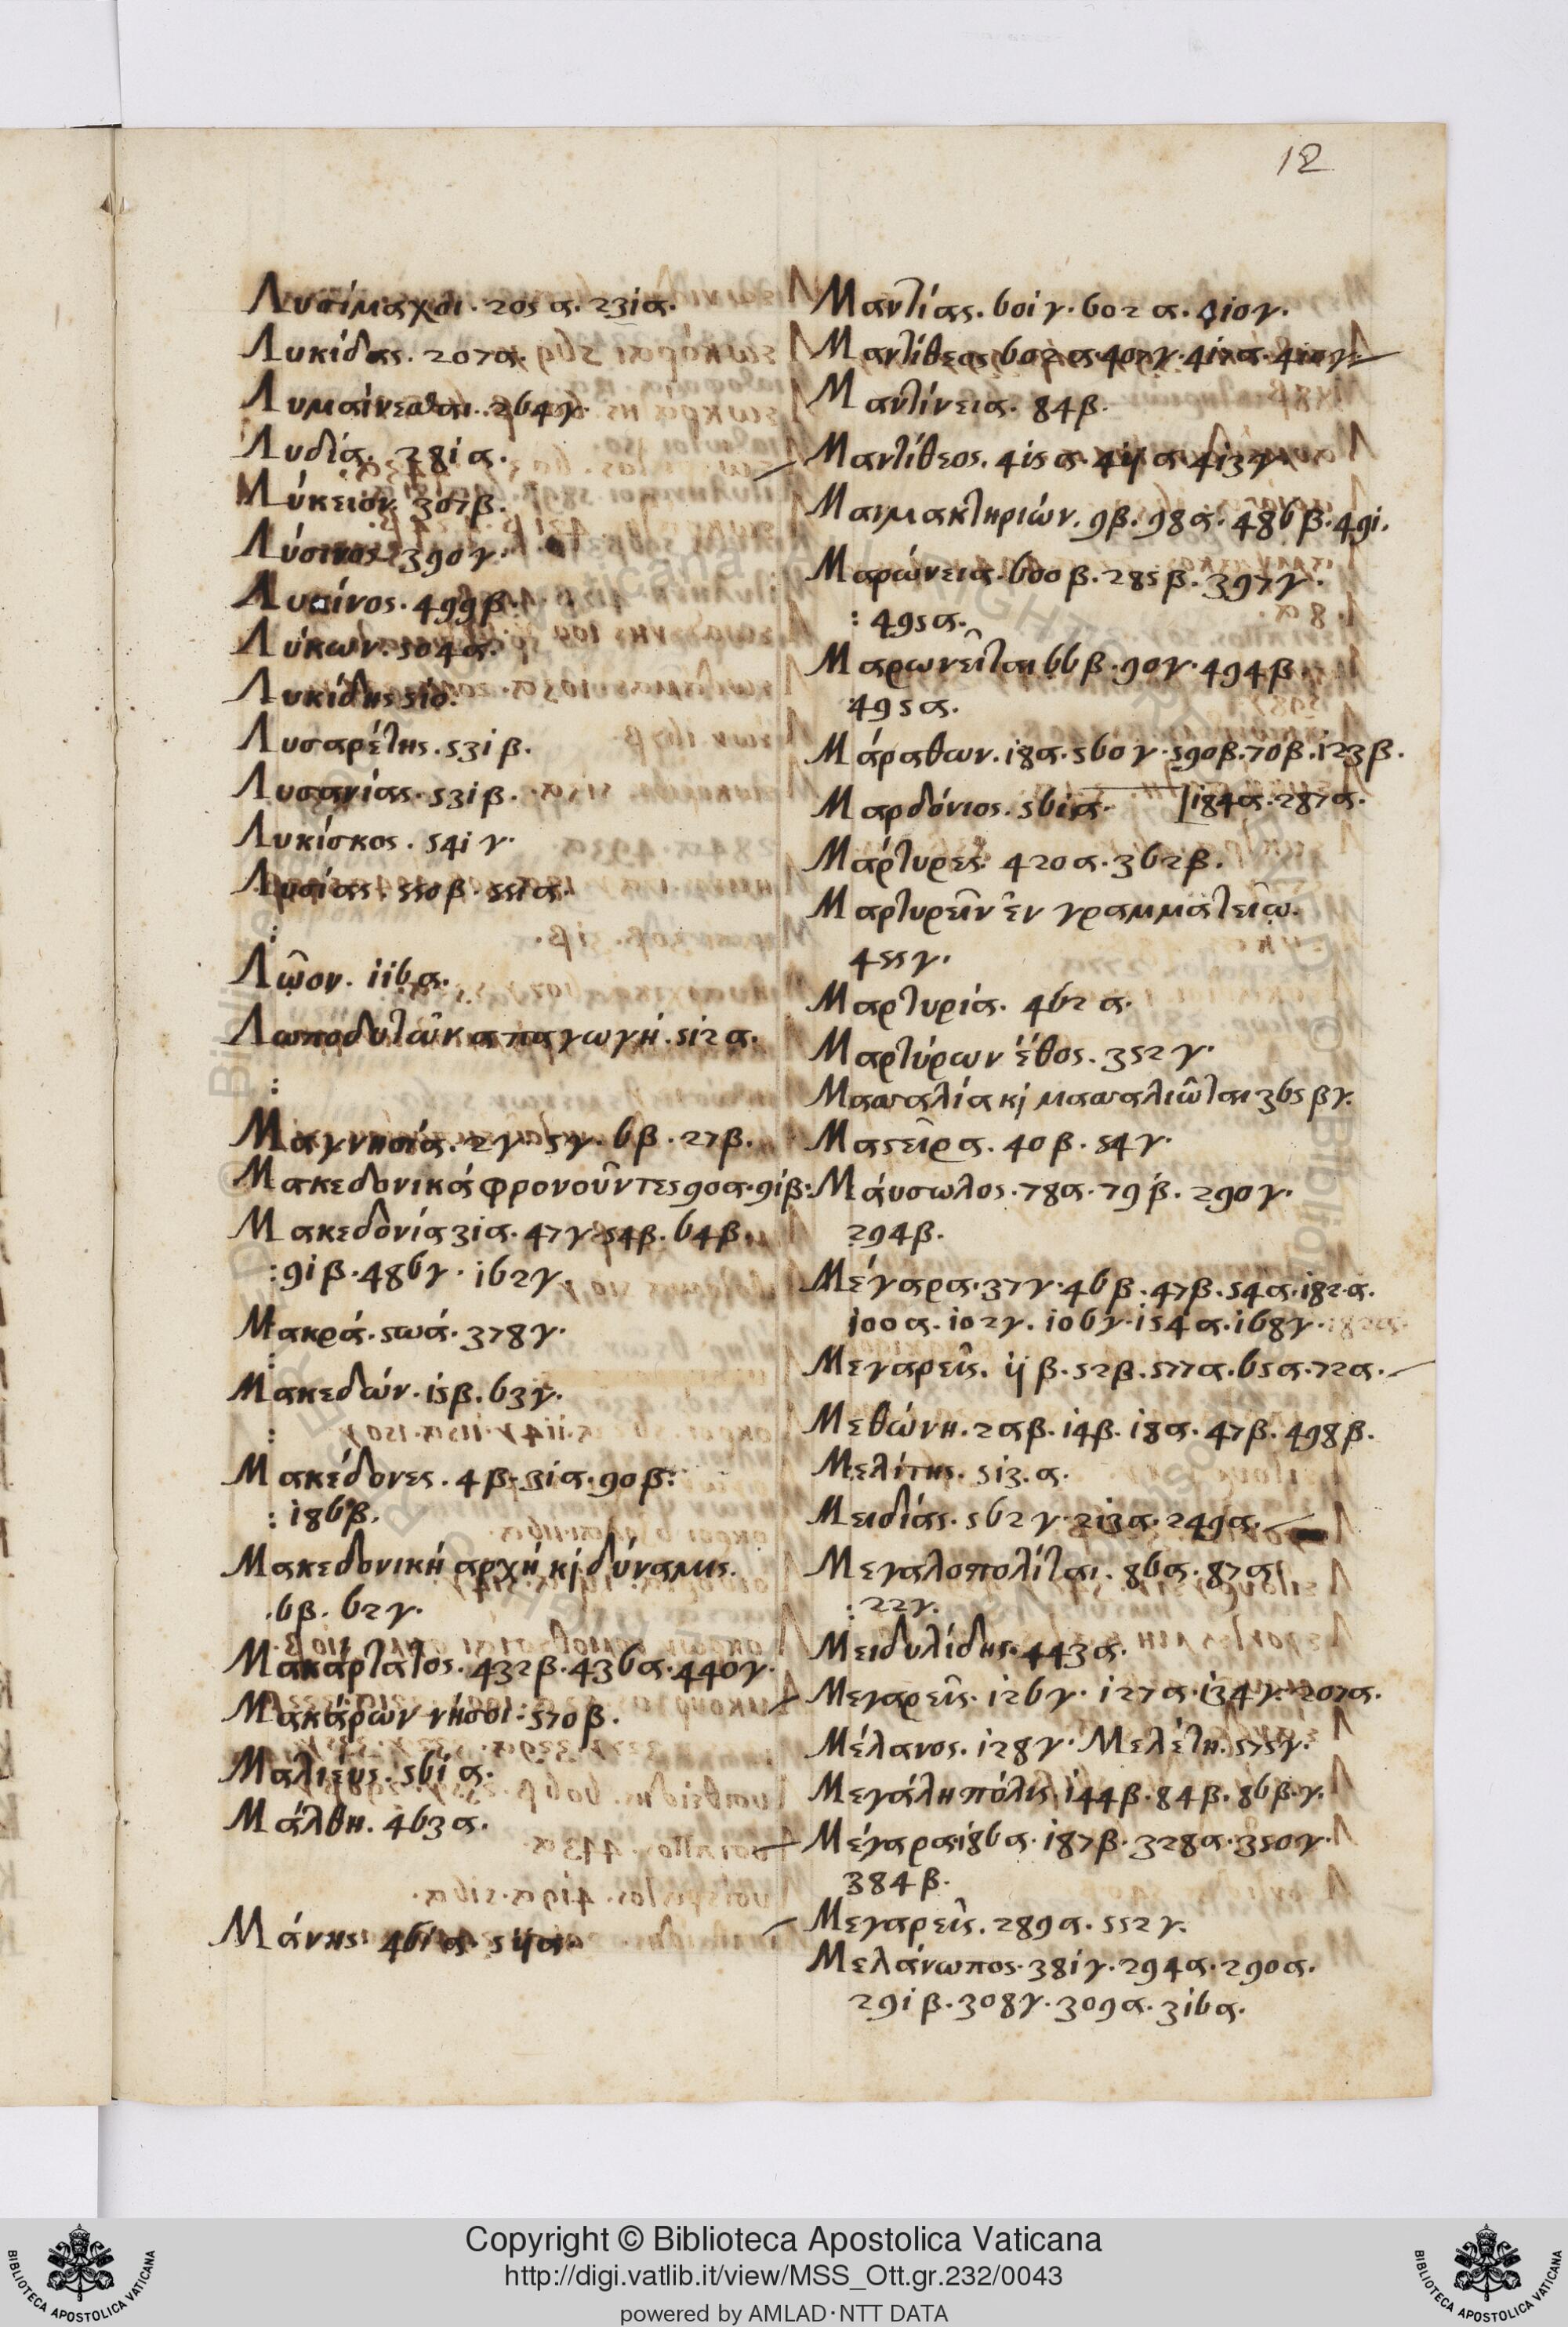 12
Λυσίμαχοι. 205 α. 231α.
Λυκίδας. 207α.
Λυμαίνεσθαι. 264γ.
Λυδία. 281 α.
Λύκειον. 307β.
Λύσινος. 390γ.
Λυσίνος. 499β.
Λύκων. 504α.
Λυκίδης 510.
Λυσαρέτης. 531 β.
Λυσανίας. 531β.
Λυκίσκος. 541 γ.
Λυσίας. 550β. 551α.
Λῷον. 116α.
Λωποδυτῶν απαγωγή. 512 α.
Μαγνησία. 2γ. 5γ. 6β. 27β.
Μακεδονικά φρονοῦντες 90α. 91β:
Μακεδονία 31α. 47γ. 54β. 64β.
: 91 β. 486γ. 162γ.
Μακρά. 378γ.
Μακεδών. 15β. 63γ.
Μακέδονες. 4 β. 31α. 90β:
: 186β.
Μακεδονική αρχή κ δύναμις.
.6β. 62γ.
Μακάρτατος. 432β. 436α. 440γ.
Μακάρων νήσοι. 570β.
Μαλιεύς. 561 α.
Μάλθη. 463α.
Μάνης. 461α. 511α.
Μαντίας. 601γ. 602 α. 410γ.
Μαντίθεος 602 α. 407γ. 417α. 410γ.
Μαντίνεια. 84β.
Μαντίθεος. 415 α. 411 α. 413γ.
Μαιμακτηριών. 9β. 98α. 486 β. 491.
Μαρώνεια. 600 β. 285β. 397γ.
: 495α.
Μαρωνεῖται 66β. 90γ. 494β.
:495α.
Μάραθων. 18α. 560γ. 590β. 70β. 123β.
Μαρδόνιος. 561α. [184α. 287α.
Μάρτυρες. 420α. 362β.
Μαρτυρεῖν ἐν γραμματείῳ.
455γ.
Μαρτυρία. 462 α.
Μαρτύρων έθος. 352γ.
Μασσαλία κ μασσαλιῶται 365 βγ.
Μαστεῖρα. 40β. 54γ.
Μάυσωλος. 78α. 79β. 290γ.
294β.
Μέγαρα. 37γ. 46β. 47β. 54α. 182α.
100α. 102γ. 106γ. 154α. 168γ. 182α.
Μεγαρεῖς. 11 β. 52β. 577α. 65α. 72α.
Μεθώνη. 2αβ. 14β. 18α. 47β. 498β.
Μελίτης. 513. α.
Μειδίας. 562γ. 213α. 249α.
Μεγαλοπολίται. 86α. 87α
: 22γ.
Μειδυλίδης. 443α.
Μεγαρεῖς. 126γ. 127α. 134γ. 207α.
Μέλανος. 128γ. Μελέτη. 575γ.
Μεγάλη πόλις. 144β. 84β. 86β.γ.
Μέγαρα 186α. 187β. 328α. 350γ.
384β.
Μεγαρεῖς. 289α. 552γ.
Μελάνωπος. 381γ. 294α. 290α.
291 β. 308γ. 309α. 316α.
Copyright © Biblioteca Apostolica Vaticana
http://digi.vatlib.it/view/MSS_Ott.gr.232/0043
powered by AMLAD·NTT DATA
BIBLIOTECA APOSTOLICA VATICANA
BIBLIOTECA APOSTOLICA VATICANA